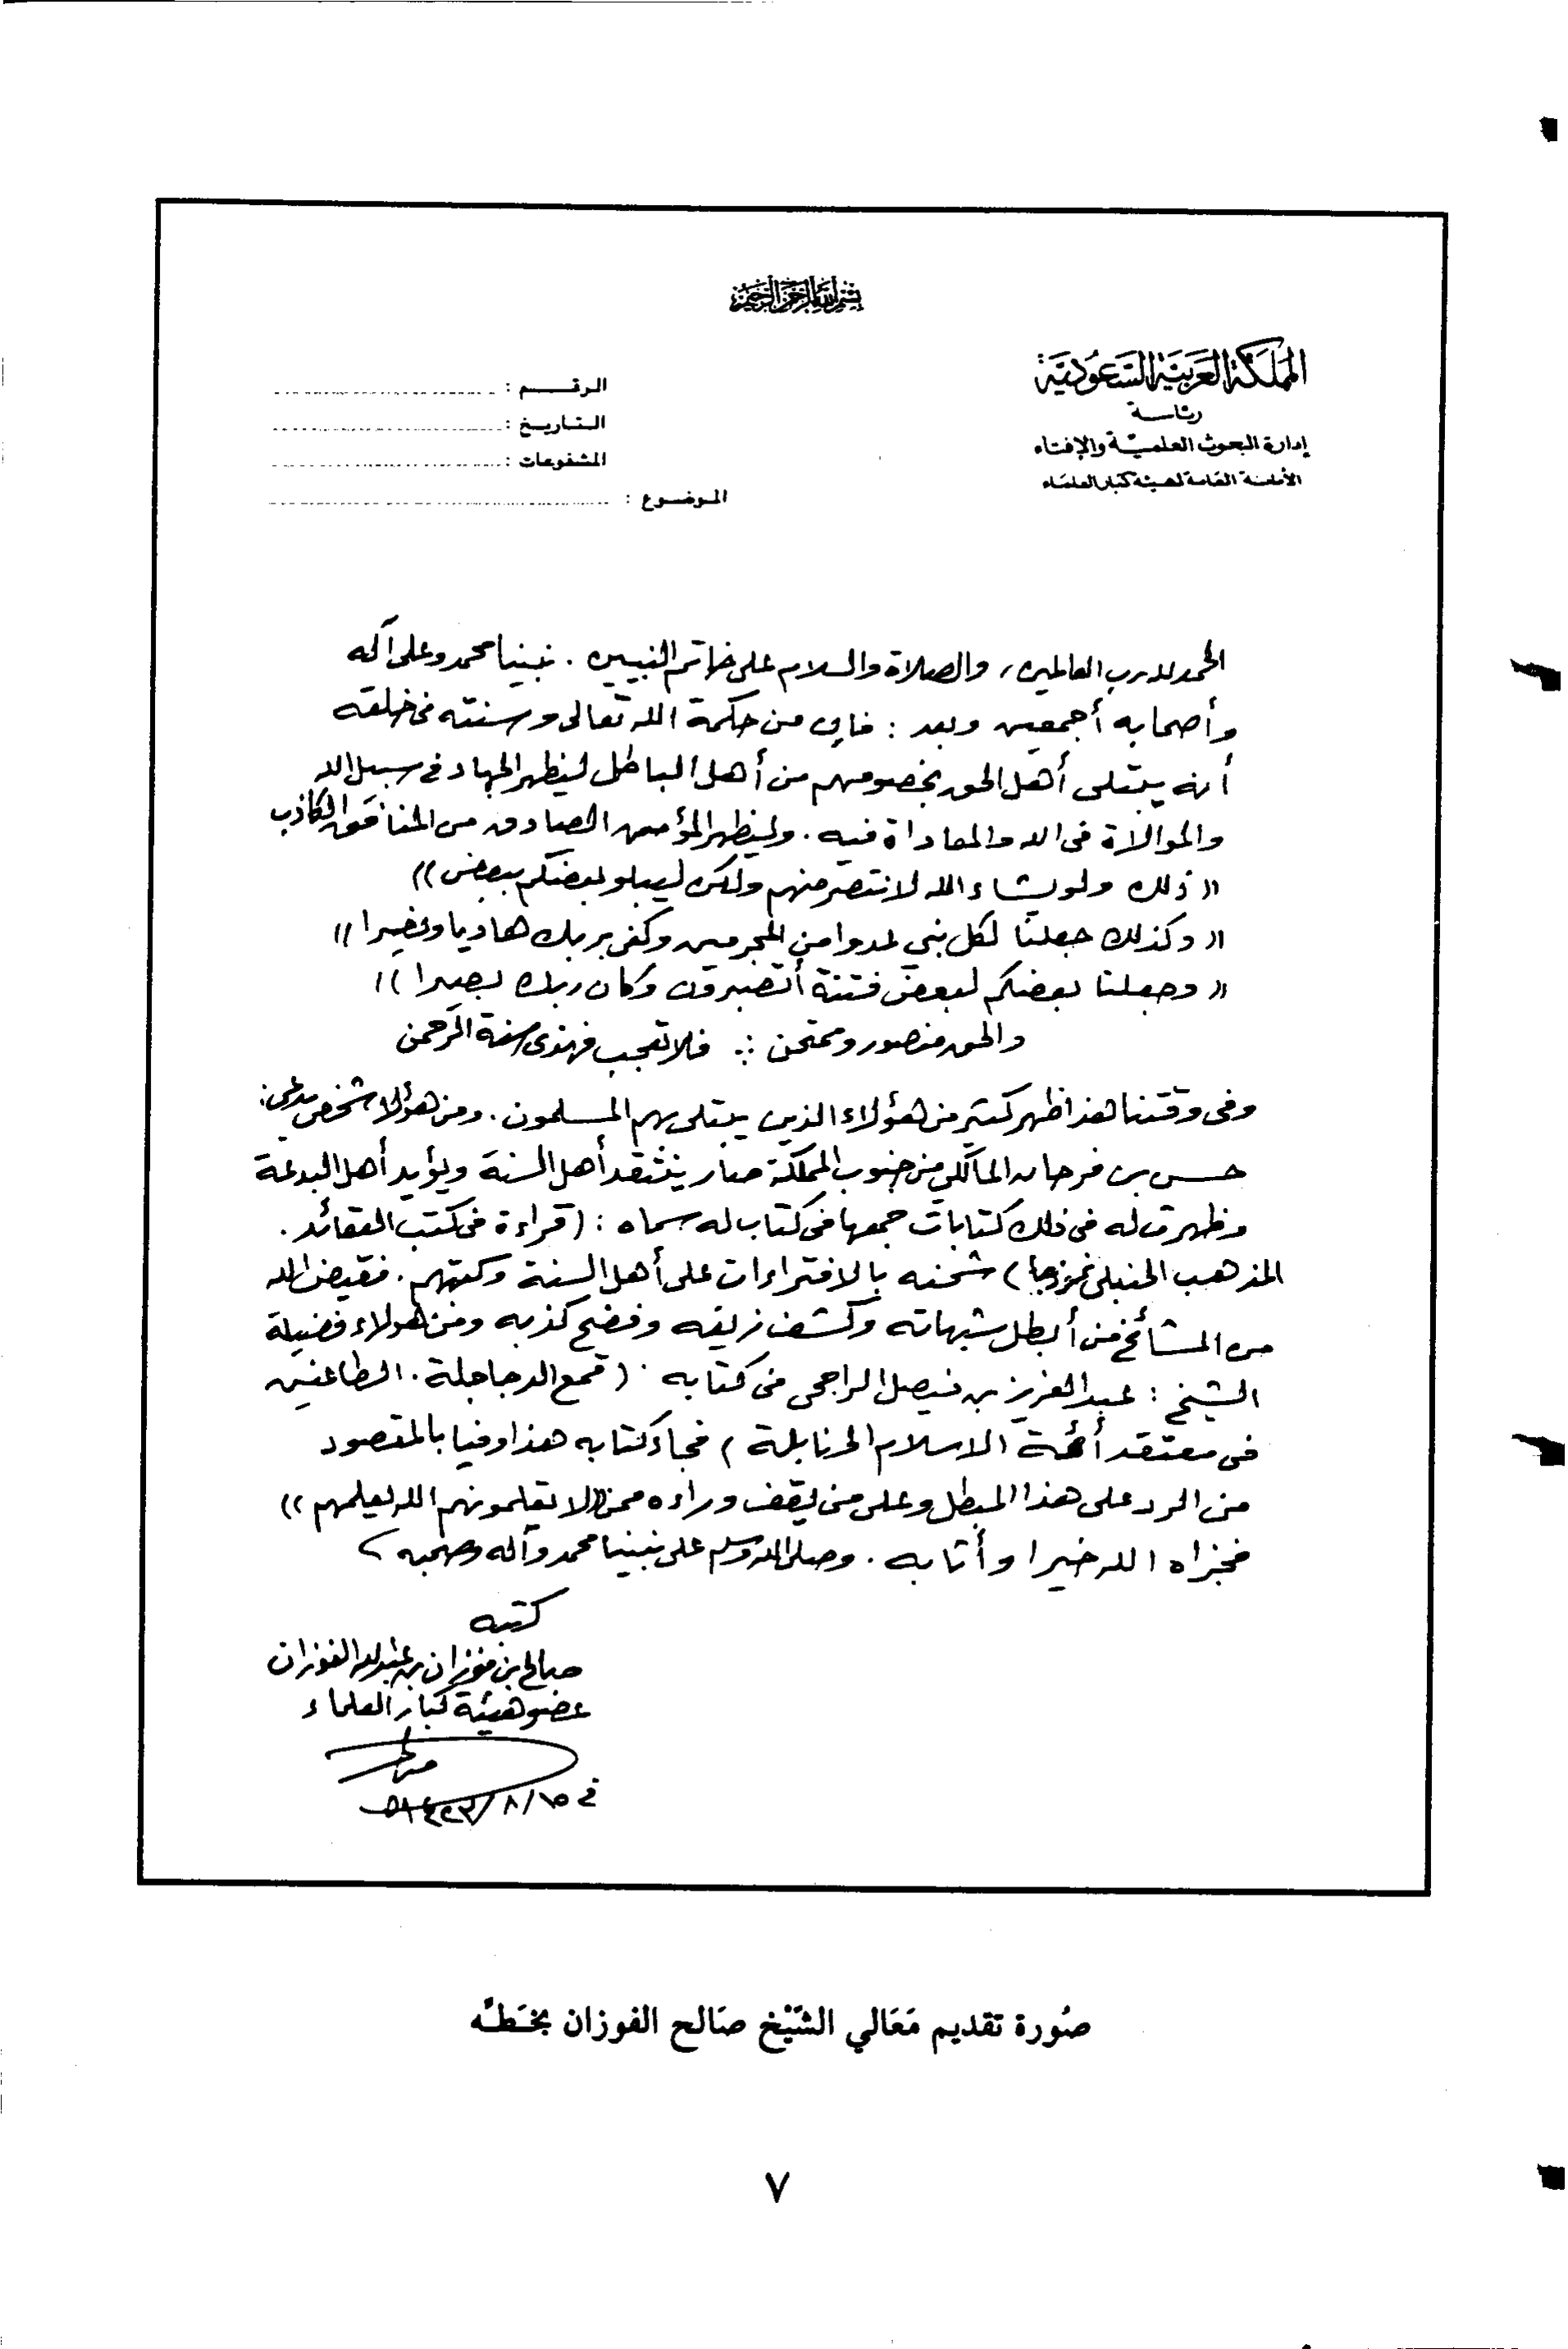 بسم الله الرحمن الرحيم
المملكة العربية السعودية
رئاسة
إدارة البحوث العلمية والإفتاء
الأمانة العامة لهيئة كبار العلماء
الرقم :
التاريخ :
المشفوعات :
الموضوع :
الحمد لله رب العالمين، والصلاة والسلام على خاتم النبيين . نبينا محمد وعلى آله
وأصحابه أجمعين وبعد : فإن من حكمة الله تعالى وسنته في خلقه
أنه يبتلى أهل الحق بخصومهم من أهل الباطل ليظهر الجهاد في سبيل الله
والموالاة في الله والمعاداة فيه . وليظهر المؤمن الصادق من المنافق الكاذب
(( ذلك ولو يشاء الله لانتصر منهم ولكن ليبلو بعضكم ببعض ))
(( وكذلك جعلنا لكل نبي عدوا من المجرمين وكفى بربك هاديا ونصيرا ))
(( وجعلنا بعضكم لبعض فتنة أتصبرون وكان ربك بصيرا ))
والحق منصور وممتحن ∴ فلا تعجب فهذى سنة الرحمن
وفي وقتنا هذا ظهر كثير من هؤلاء الذين يبتلى بهم المسلمون . ومن هؤلاء شخص يدعى:
حسن بن فرحان المالكي من جنوب المملكة صار ينتقد أهل السنة ويؤيد أهل البدعة
وظهرت له في ذلك كتابات جمعها في كتاب له سماه : (قراءة في كتب العقائد .
المذهب الحنبلي نموذجا) شحنه بالافتراءات على أهل السنة وكتبهم . فقيض الله
من المشائخ من أبطل شبهاته وكشف زيفه وفضح كذبه ومن هولاء فضيلة
الشيخ : عبد العزيز بن فيصل الراجحي في كتابه : (قمع الدجاجلة . الطاعنين
في معتقد أئمة الاسلام الحنابلة) فجاء كتابه هذا وفيا بالمقصود
من الرد على هذا المبطل وعلى من يقف وراءه ممن ((لا تعلمونهم الله يعلمهم ))
فجزاه الله خيرا وأثابه . وصلى الله وسلم على نبينا محمد وآله وصحبه
كتبه
صالح بن فوزان بن عبدالله الفوزان
عضو هيئة كبار العلماء
في ١٥/٨/١٤٢٣هـ
صورة تقديم معالي الشيخ صالح الفوزان بخطه
٧